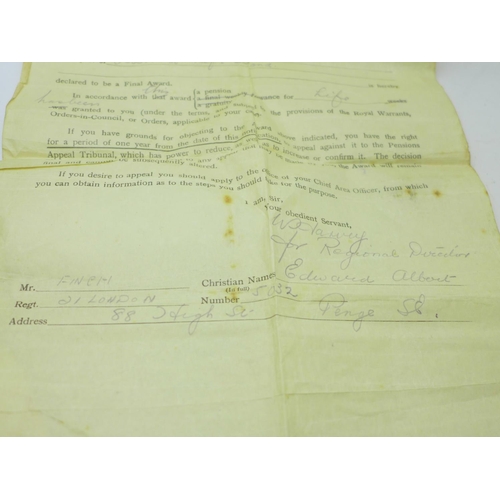 declared to be a Final Award.
In accordance with that award this a pension for Life
granted to you (under the terms, and subject to the provisions of the Royal Warrants,
Orders-in-Council, or Orders, applicable to your
If you have grounds for objecting to the Award above indicated, you have the right
for a period of one year from the date of this notification to appeal against it to the Pensions
Appeal Tribunal, which has power to reduce, as well as to increase or confirm it. The decision
If you desire to appeal you should apply to the office of your Chief Area Officer, from which
you can obtain information as to the steps you should take for the purpose.
I am, Sir,
Your obedient Servant,
for Regional Director
Mr. FINCH Christian Names Edward Albert
(In full)
Regt. 21 LONDON Number 5032
Address 88 High St. Penge SE.